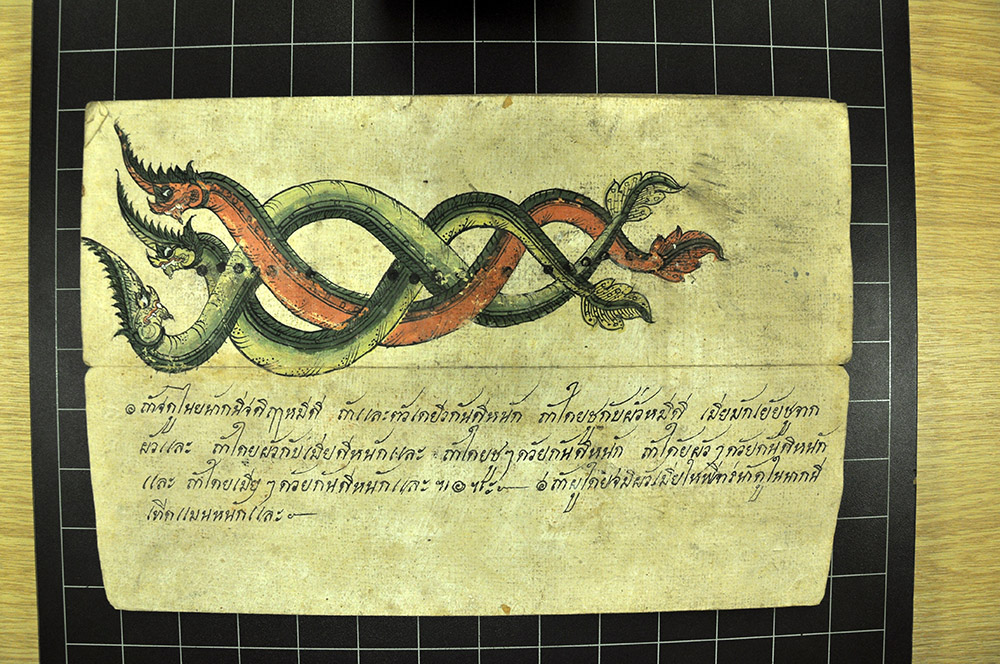 ๏ ถ้าจดูในยนากนีจ่ดีฤๅหมีดี ถ้าและตัวเดยีวกันดีหนัก ถ้าไดยชูกับผัวหมีดี เมียมักไยัยชูจาก
ผัวและ ถ้าไดยผัวกับเมียดีหนักและ ถ้าไดยชูๆดวัยกันดีหนัก ถ้าไดัยผัวๆดวัยกันดีหนัก
และ ถ้าไดยเมียๆดวัยกันดีหนักและ ๚ะ๛ ๏ ถ้าผู้ไดยจ่มีผัวเมียให้พีจารนาดูในนากนี
เทีดแมนหนักและ๛